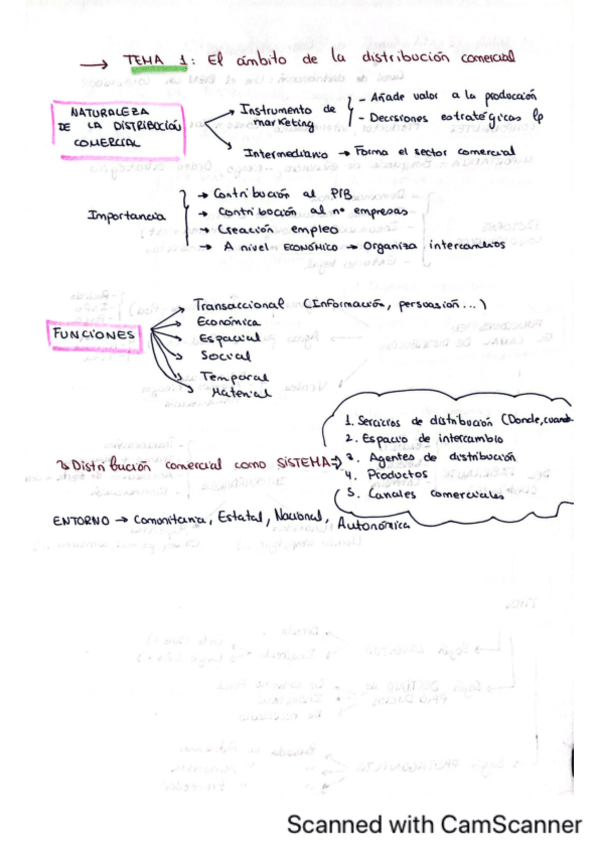 → TEMA 1: El ámbito de la distribución comercial
NATURALEZA DE LA DISTRIBUCIÓN COMERCIAL
→ Instrumento de marketing
- Añade valor a la producción
- Decisiones estratégicas lp
→ Intermediario → Forma el sector comercial
Importancia
→ Contribución al PIB
→ Contribución al nº empresas
→ Creación empleo
→ A nivel ECONÓMICO → Organiza intercambios
FUNCIONES
Transaccional (Información, persuasión...)
Económica
Espacial
Social
Temporal
Material
Distribución comercial como SISTEMA →
1. Servicios de distribución (Donde, cuand
2. Espacio de intercambio
3. Agentes de distribución
4. Productos
5. Canales comerciales
ENTORNO → Comunitaria, Estatal, Nacional, Autonómica
Scanned with CamScanner